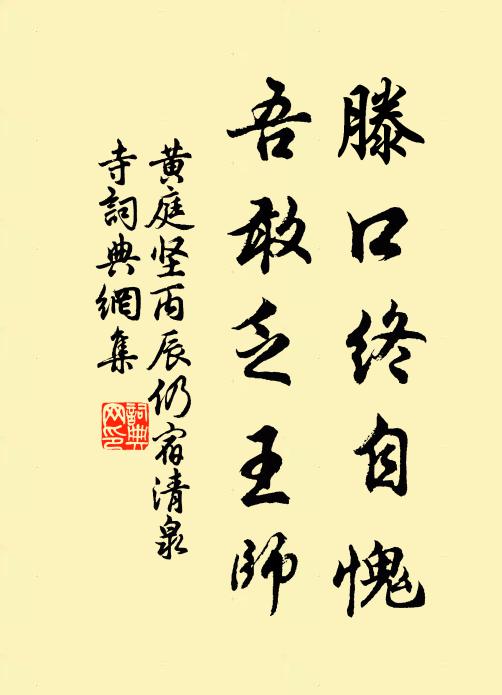 滕口终自愧
吾敢乏王師
黄庭坚丙辰仍宿清泉
寺詞典網集
詞典
网印